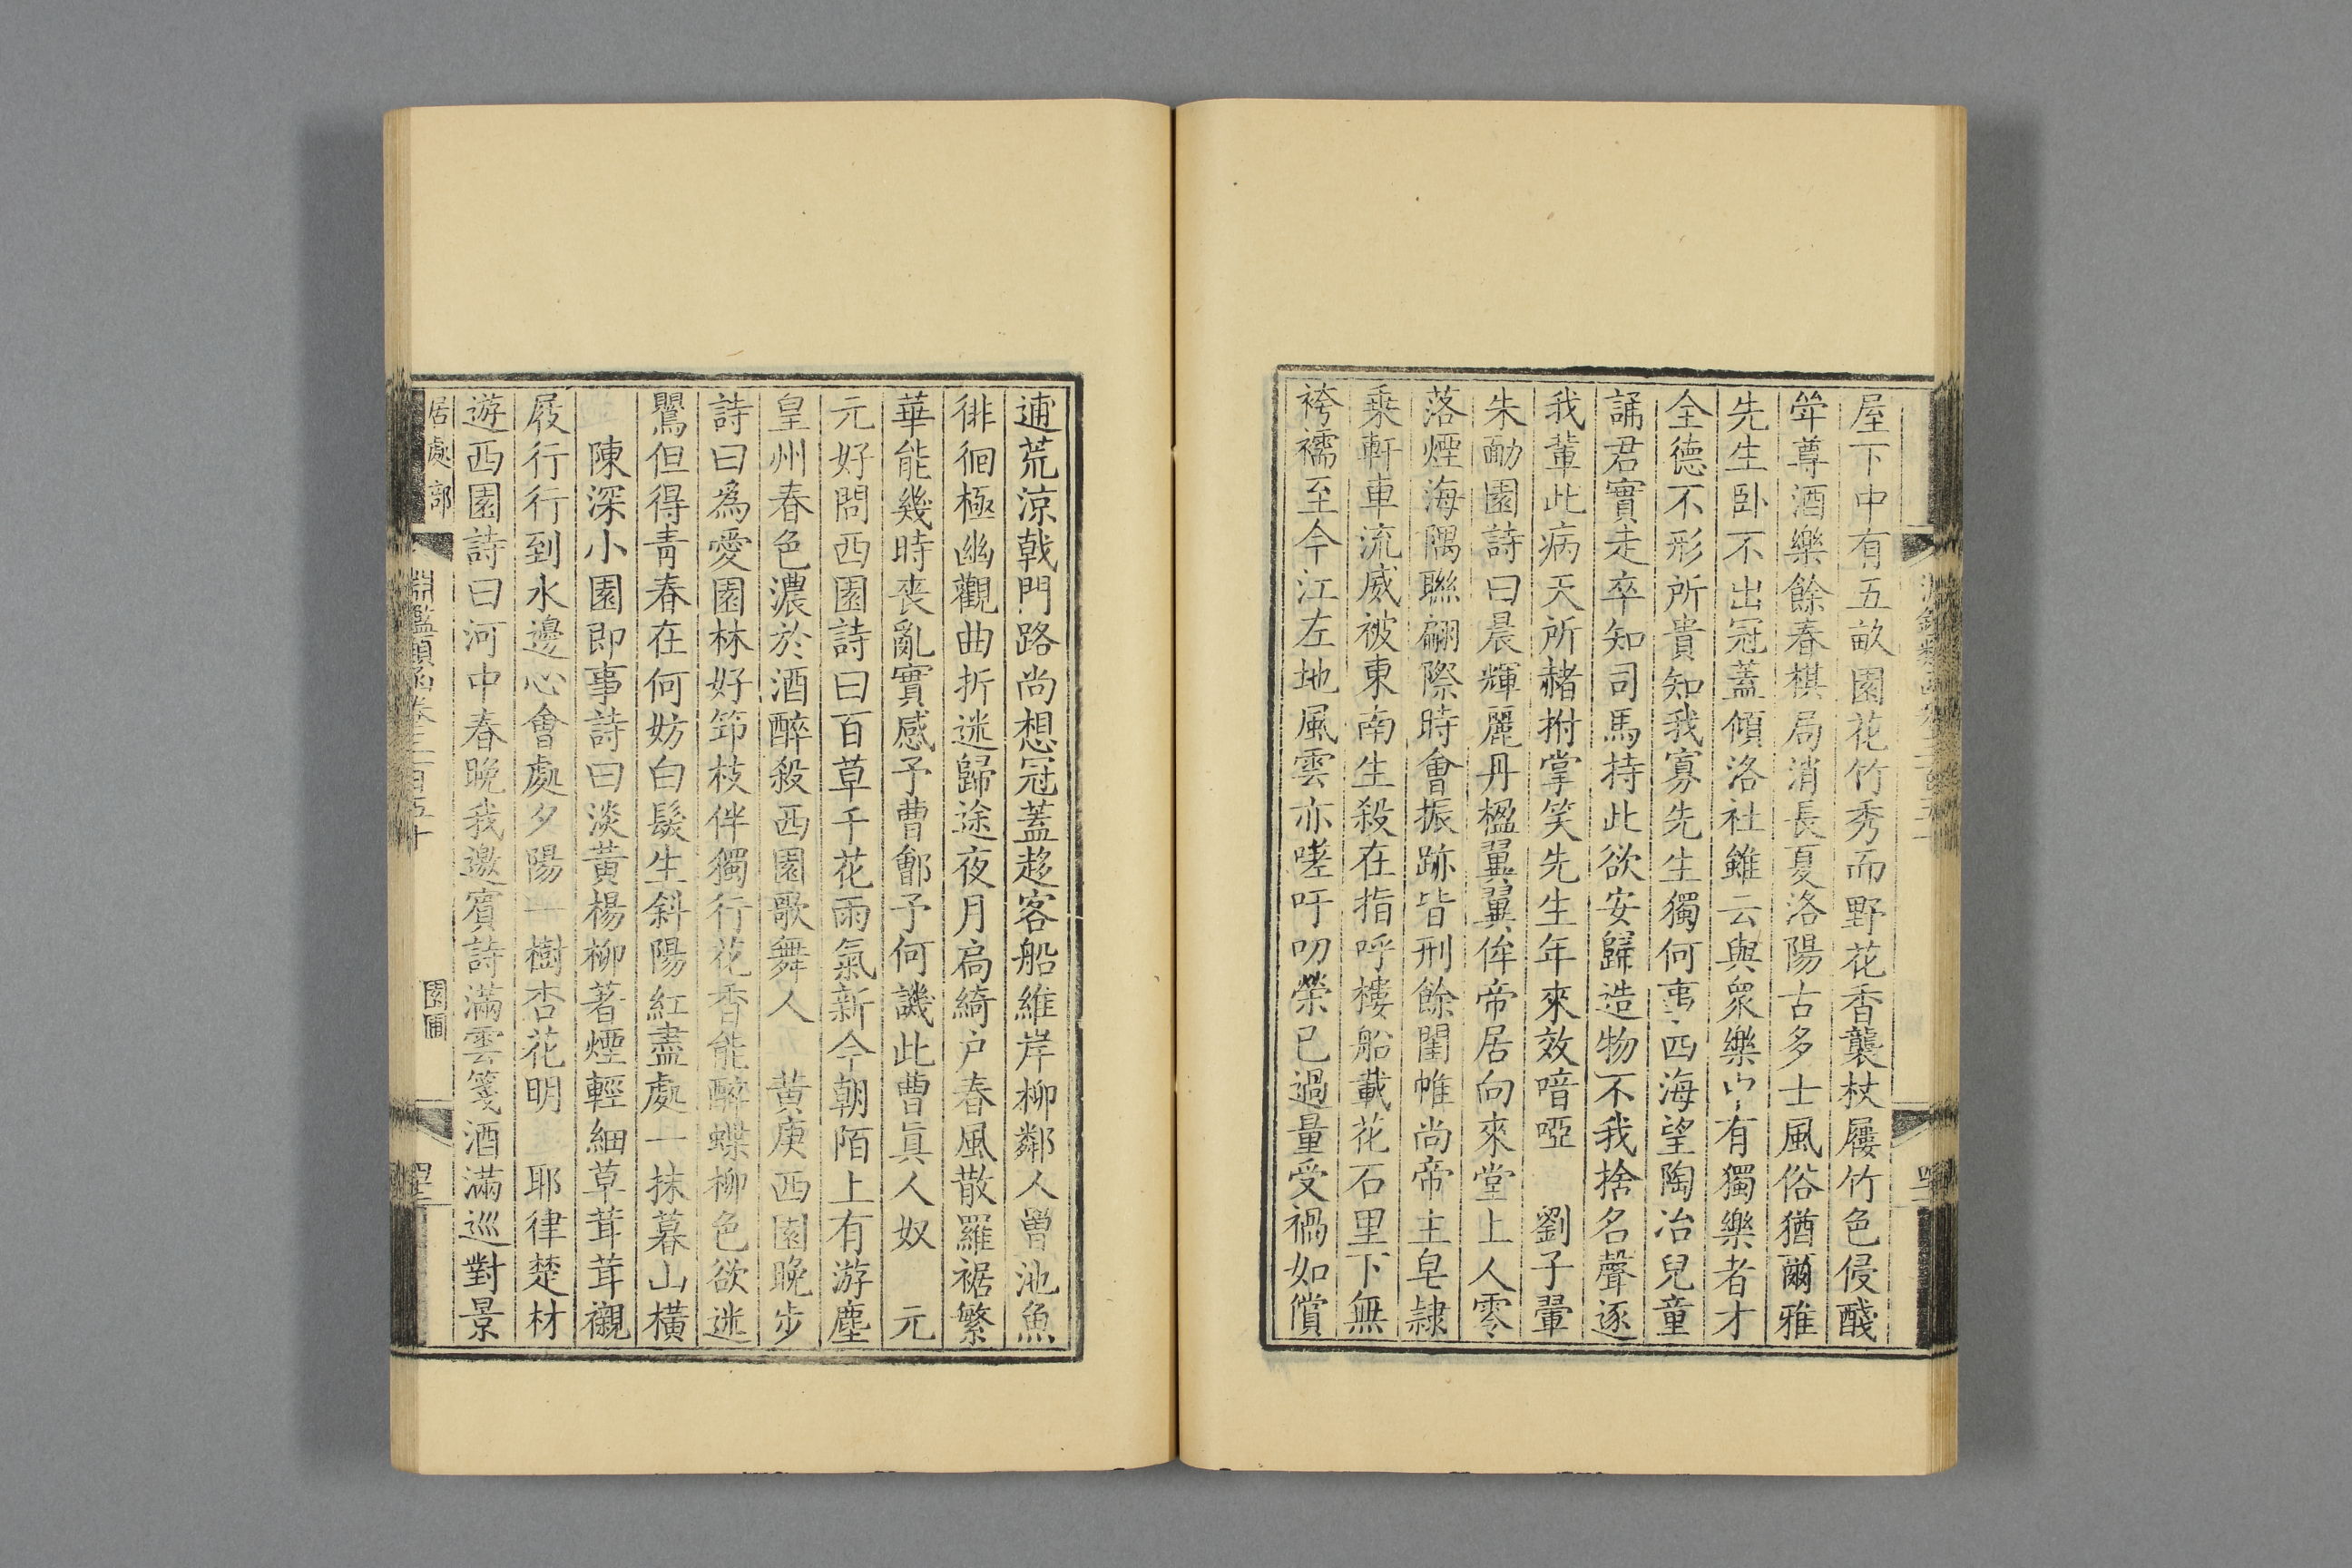 屋下中有五畝園花竹秀而野花香襲杖屨竹色侵醆
斝尊酒樂餘春棋局消長夏洛陽古多士風俗猶爾雅
先生卧不出冠蓋傾洛社雖云與衆樂中有獨樂者才
全德不形所貴知我寡先生獨何事西海望陶冶兒童
誦君實走卒知司馬持此欲安歸造物不我捨名聲逐
我輩此病天所赭拊掌笑先生年來效喑啞　劉子翬
朱勔園詩曰晨輝麗丹楹翼翼侔帝居向來堂上人零
落煙海隅聯翩際時會振跡皆刑餘閨帷尚帝主皂隷
乘軒車流威被東南生殺在指呼樓船載花石里下無
袴襦至今江左地風雲亦嗟吁叨榮已過量受禍如償
逋荒涼戟門路尚想冠蓋趍客船維岸柳鄰人罾池魚
徘徊極幽觀曲折迷歸途夜月扃綺户春風散羅裾繁
華能幾時喪亂實感予曹鄶予何譏此曹眞人奴　元
元好問西園詩曰百草千花雨氣新今朝陌上有游塵
皇州春色濃於酒醉殺西園歌舞人　黄庚西園晚步
詩曰爲愛園林好笻枝伴獨行花香能醉蝶柳色欲迷
鸎但得青春在何妨白髮生斜陽紅盡處一抹暮山橫
陳深小園即事詩曰淡黄楊柳著煙輕細草茸茸襯
屐行行到水邊心會處夕陽一樹杏花明　耶律楚材
遊西園詩曰河中春晚我邀賓詩滿雲箋酒滿巡對景
居處部
淵鑑類函卷三百五十
園圃